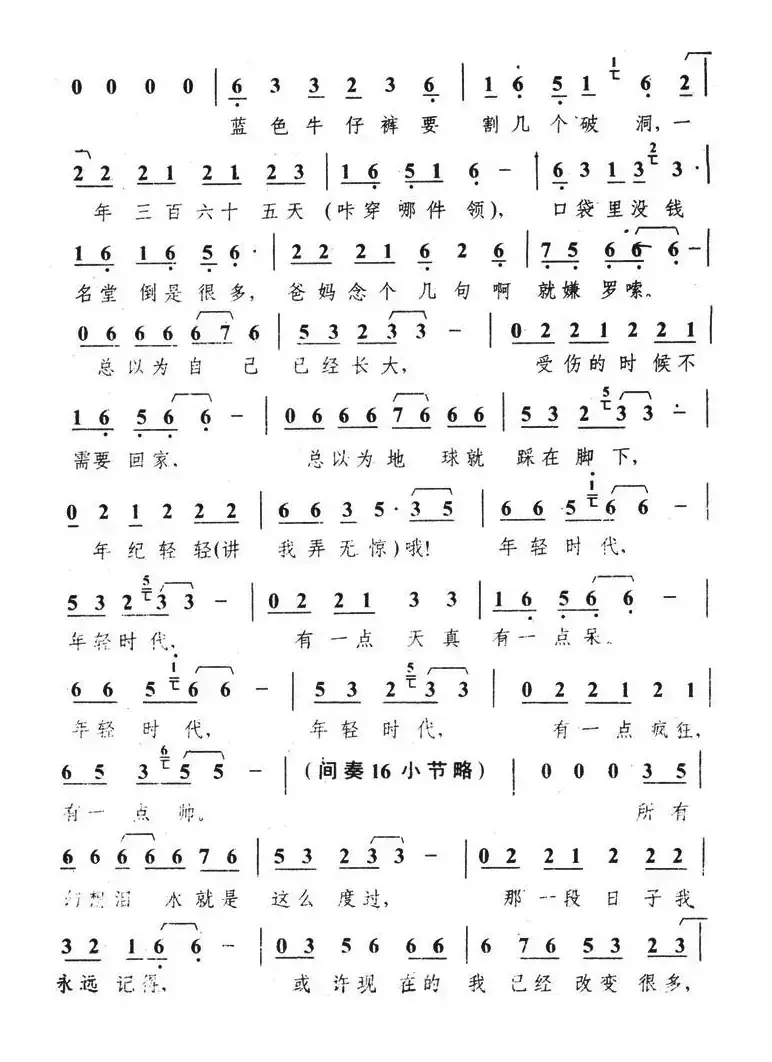 0 0 0 0 | 6 3 3 2 3 6 | 1 6 5 1 1 6 2 |
蓝色牛仔裤要 割几个破洞,一
2 2 2 1 2 1 2 3 | 1 6 5 1 6 - | 6 3 1 3 2 3 · |
年三百六十五天(咔穿哪件领), 口袋里没钱
1 6 1 6 5 6 · | 2 2 2 1 6 2 6 | 7 5 6 6 6 - |
名堂倒是很多, 爸妈念个几句啊就嫌罗嗦。
0 6 6 6 6 7 6 | 5 3 2 3 3 - | 0 2 2 1 2 2 1 |
总以为自己已经长大, 受伤的时候不
1 6 5 6 6 - | 0 6 6 6 7 6 6 6 | 5 3 2 5 3 3 - |
需要回家, 总以为地球就踩在脚下,
0 2 1 2 2 2 | 6 6 3 5 · 3 5 | 6 6 5 i 6 6 - |
年纪轻轻(讲我弄无惊)哦! 年轻时代,
5 3 2 5 3 3 - | 0 2 2 1 3 3 | 1 6 5 6 6 - |
年轻时代, 有一点天真有一点呆。
6 6 5 i 6 6 - | 5 3 2 5 3 3 - | 0 2 2 1 2 1 |
年轻时代, 年轻时代, 有一点疯狂,
6 5 3 6 5 5 - | (间奏16小节略) | 0 0 0 3 5 |
有一点帅。 所有
6 6 6 6 6 7 6 | 5 3 2 3 3 - | 0 2 2 1 2 2 2 |
幻想泪水就是这么度过, 那一段日子我
3 2 1 6 6 - | 0 3 5 6 6 6 | 6 7 6 5 5 3 2 3 |
永远记得, 或许现在的我已经改变很多,